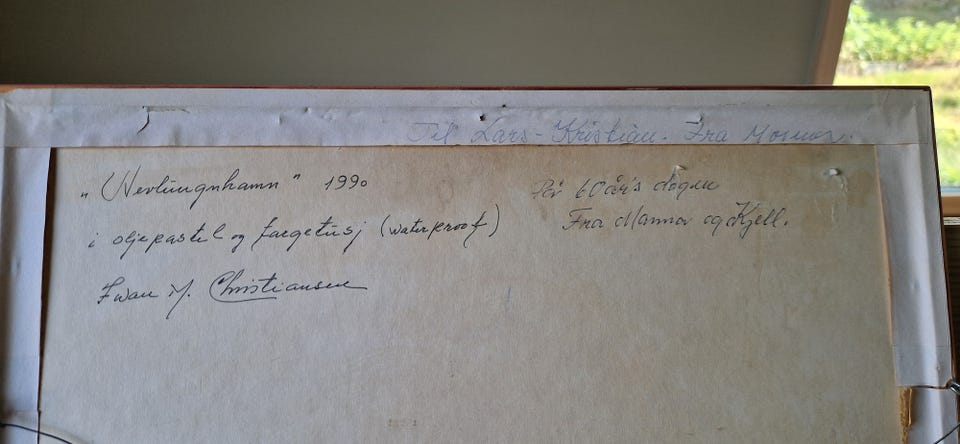 Til Lars-Kristian. Fra Mormor.
„Nevlunghamn" 1990
i oljepastel og fargetusj (waterproof)
Iwan M. Christiansen
På 60 års dagen
Fra Mamma og Kjell.